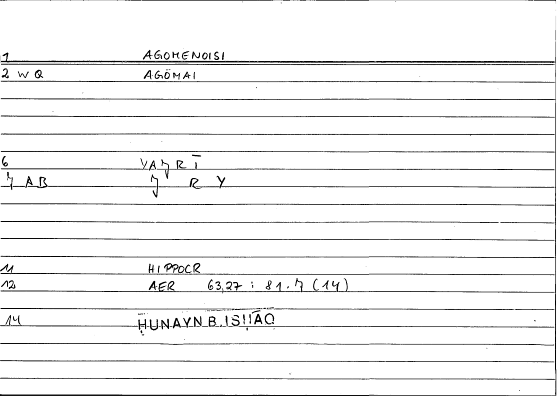 1 AGOMENOISI
2 WQ AGŌMAI
6 YA7RĪ
7 AB 7 R Y
11 HIPPOCR
12 AER 63,27 : 81.7 (14)
14 ḤUNAYN B. ISḤĀQ